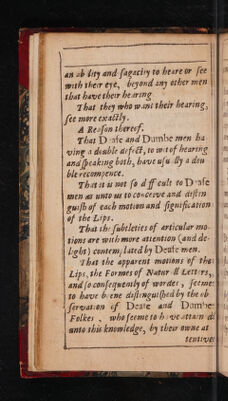 an ability and sagacity to heare or see
with their eye, beyond any other men
that have their hearing
That they who want their hearing,
see more exactly.
A Reason thereof.
That Deafe and Dumbe men ha
ving a double defect, to wit of hearing
and speaking both, have usually a dou
ble recompence.
That it is not so difficult to Deafe
men as unto us to conceave and distin
guish of each motion and signification
of the Lips.
That the subtleties of articular mo
tions are with more attention (and de-
light) contemplated by Deafe men.
That the apparent motions of the
Lips, the Formes of Naturall Letters,
and so consequently of wordes, seeme
to have beene distinguished by the ob
servation of Deafe and Dumbe
Folkes, who seeme to have attain'd
unto this knowledge, by their owne at
tentives